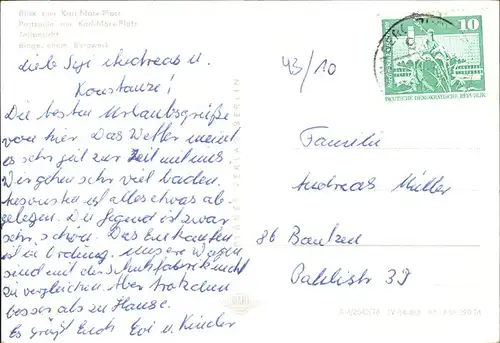 Blick zum Karl-Marx-Platz
Postmeile am Karl-Marx-Platz
Teilansicht
ehem. Bergwerk
Liebe Sigi Andreas u.
Konstanze!
Die besten Urlaubsgrüße
von hier. Das Wetter meint
es sehr gut zur Zeit mit uns
Wir gehen sehr viel baden.
Ansonsten ist alles etwas ab-
gelegen. Die Gegend ist zwar
sehr schön. Das Einkaufen
ist in Ordnung. Unsere Wagen
sind mit der Schuhfabrik nicht
zu vergleichen. Aber trotzdem
besser als zu Hause.
Es grüßt Euch Evi u. Kinder
43/10
10
DEUTSCHE DEMOKRATISCHE REPUBLIK
Familie
Andreas Müller
86 Bautzen
Paulistr 39